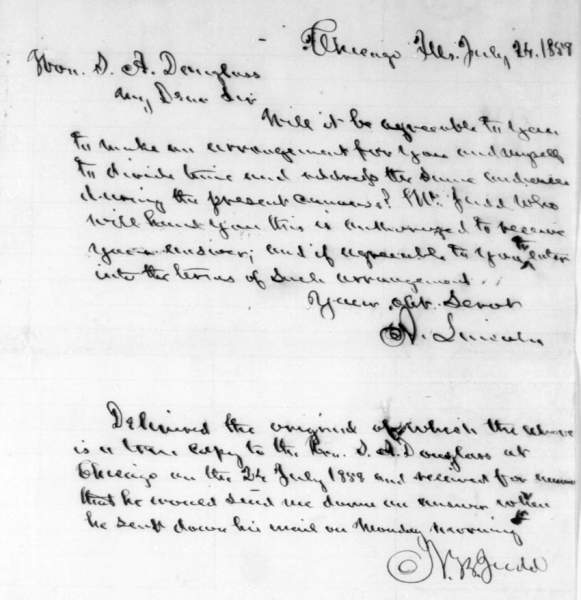 Chicago Ills. July 24. 1858
Hon. S. A. Douglass
My Dear Sir
Will it be agreeable to you
to make an arrangement for you and myself
to divide time and address the same audiences
during the present canvass? Mr. Judd who
will hand you this is authorized to receive
your answer; and if agreeable to you to enter
into the terms of such arrangement
Your obt. Servt
A. Lincoln
Delivered the original of which the above
is a true copy to the Hon. S. A. Douglass at
Chicago on the 24 July 1858 and received for answer
that he would send me down an answer when
he sent down his mail on Monday morning
N. B. Judd